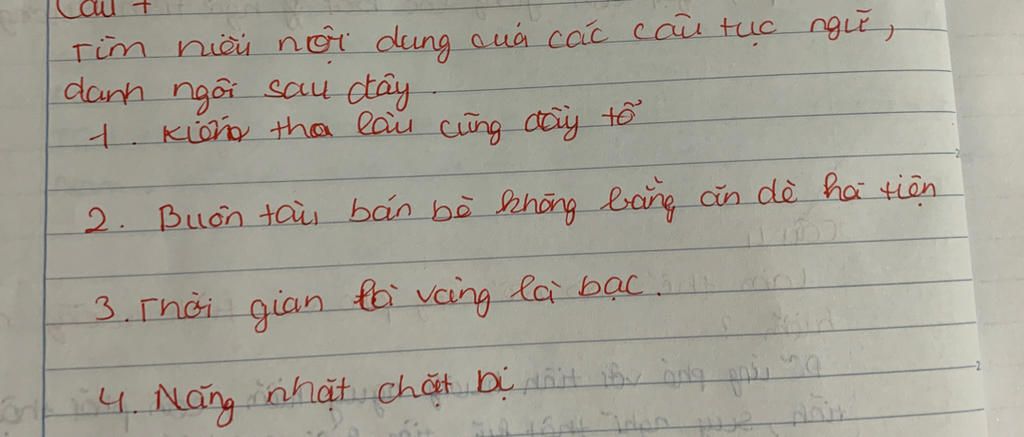 Câu 1
Tìm hiểu nội dung của các câu tục ngữ,
danh ngôn sau đây.
1. Kiến tha lâu cũng đầy tổ
2. Buôn tàu bán bè không bằng ăn dè hà tiện
3. Thời gian là vàng là bạc.
4. Năng nhặt chặt bị